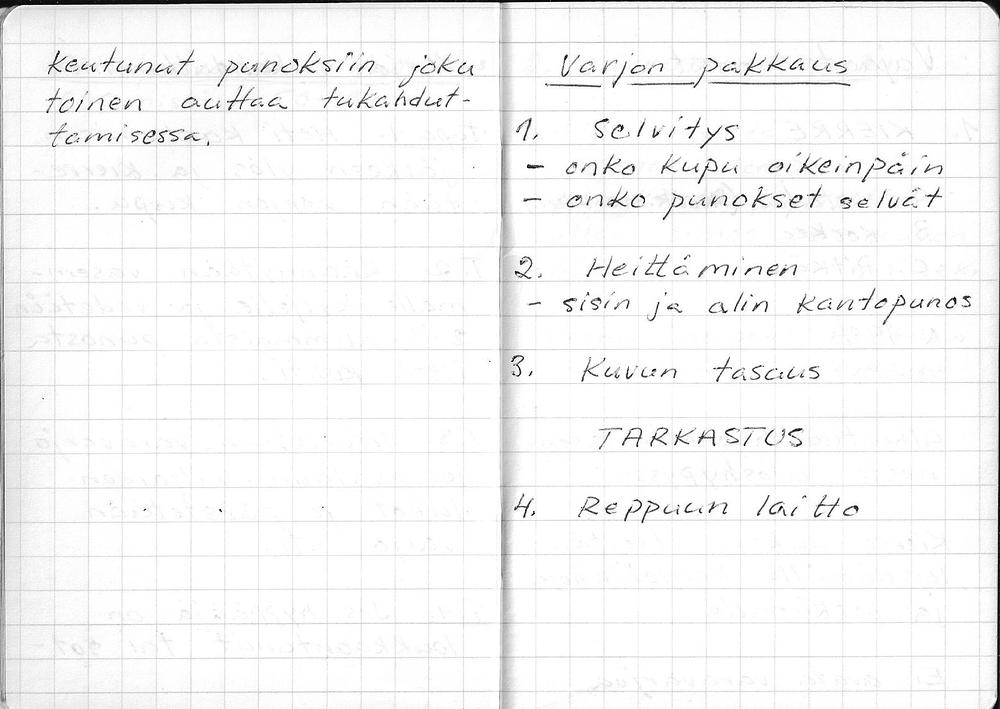 keutunut punoksiin joku
toinen auttaa tukahdut-
tamisessa.
Varjon pakkaus
1. Selvitys
- onko kupu oikeinpäin
- onko punokset selvät
2. Heittäminen
- sisin ja alin kantopunos
3. Kuvun tasaus
TARKASTUS
4. Reppuun laitto